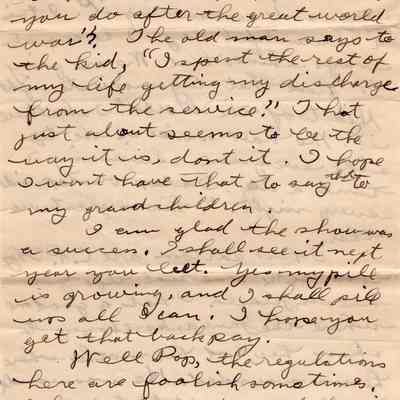 you do after the great world
war'?. The old man says to
the kid, "I spent the rest of
my life getting my discharge
from the service." That
just about seems to be the
way it is, dont it. I hope
I wont have that to say to
my grandchildren.
I am glad the show was
a success. I shall see it next
year you bet. Yes my pile
is growing, and I shall pile
up all I can. I hope you
get that back pay.
Well Pop, the regulations
here are foolish sometimes.